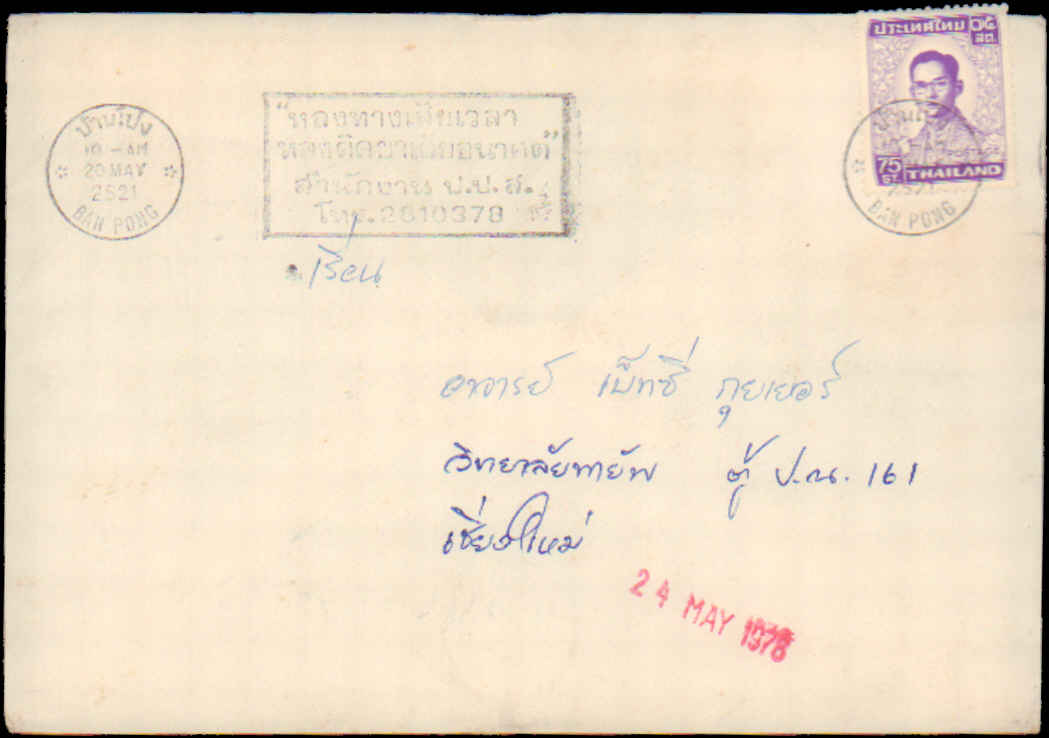 ประเทศไทย ๗๕ สต.
75 ST. THAILAND
บ้านโป่ง
10 - AM
20 MAY
2521
BAN PONG
"หลงทางเสียเวลา
หลงติดยาเสียอนาคต"
สำนักงาน ป.ป.ส.
โทร.2810379
บ้านโป่ง
2521
BAN PONG
เรียน
อาจารย์ เบ็ทซี่ กุยเยอร์
วิทยาลัยพายัพ ตู้ ป.ณ. 161
เชียงใหม่
24 MAY 1978